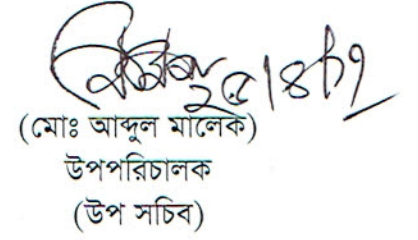 ২৫/৪/১৭
(মোঃ আব্দুল মালেক)
উপপরিচালক
(উপ সচিব)